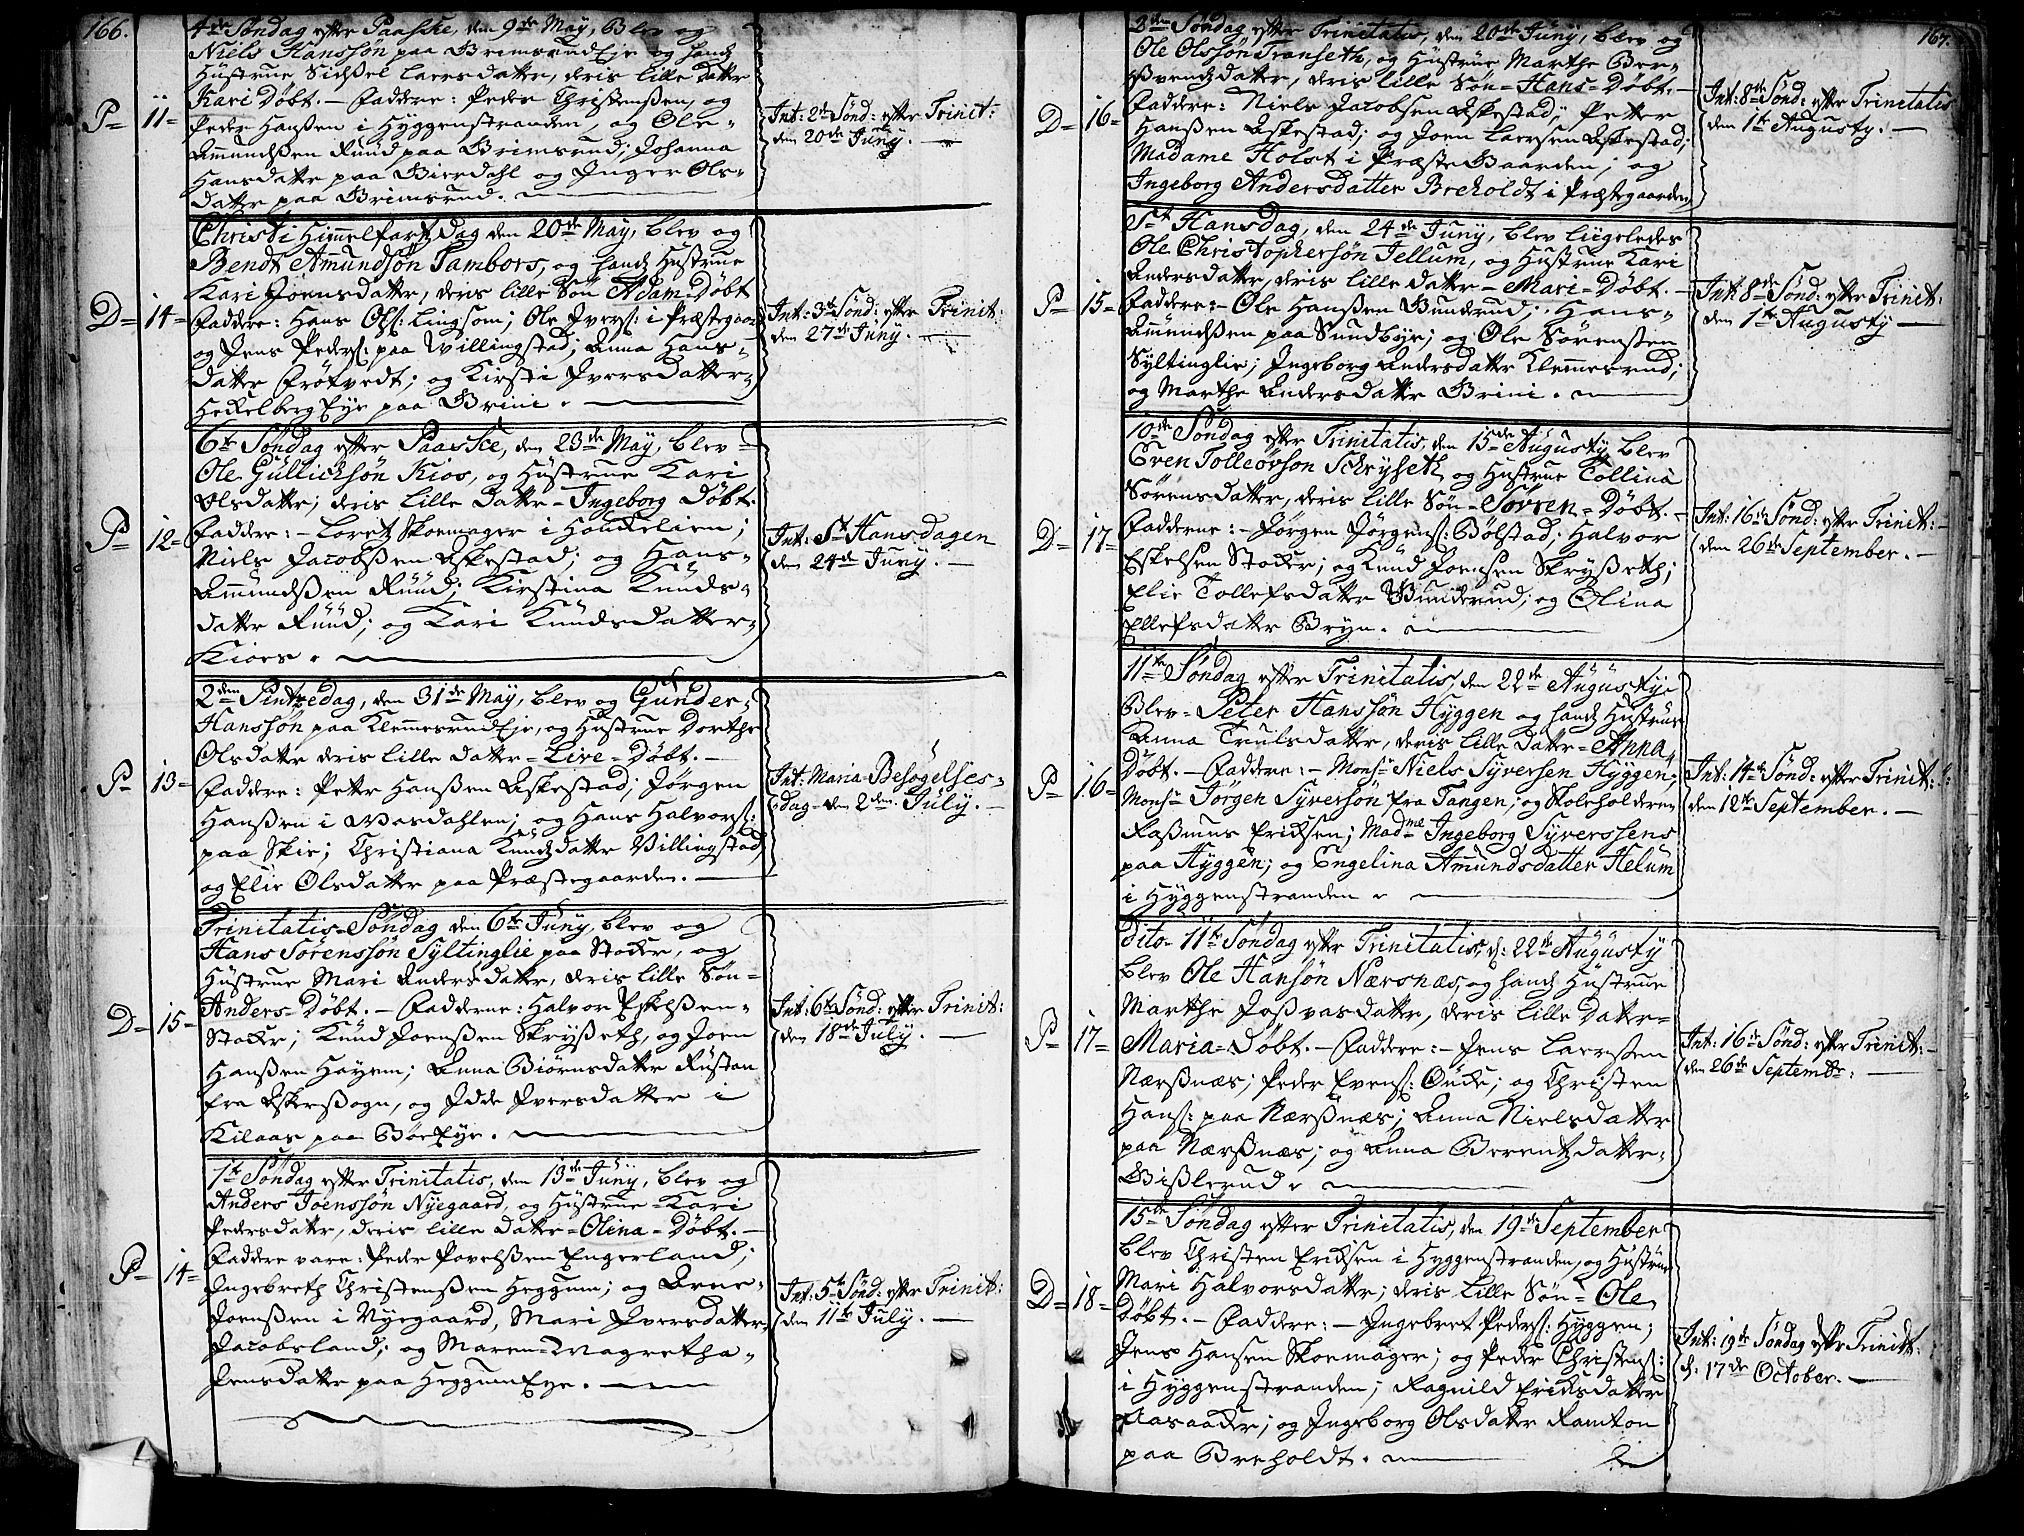 166.
4de Søndag efter Paaske, den 9de May, Blev og
Niels Hanssøn paa BrimsrudEje og hands
Hustrue Sidsel Laersdatter, deris lille datter
Kari Døbt. — Faddere: Peder Christenssen, og
Peder Hanssen i Hyggenstranden, og Ole
Amundssen Ruud paa Brimsrud; Johanna
Hansdatter paa Bierdahl og Inger Ols-
datter paa Brimsrud.
P 11
Int: 2de Sønd: efter Trinit:
den 20de Juny. —
Christi Himmelfartzdag den 20de May, blev og
Bendt Amundsøn Tambors, og hands Hustrue
Kari Joensdatter, deris lille Søn Adam Døbt
Faddere: Hans Ols: Lingsom; Ole Ivers: i Præstegaar:
og Jens Peders: paa Willingstad; Anna Hans-
datter Frøtvedt; og Kirsti Iversdatter
HekelbergEye paa Brini.
D 14
Int: 3de Sønd: efter Trinit:
den 27de Juny. —
6te Søndag efter Paaske, den 23de May, blev
Ole Gullichsøn Kios, og Hustrue Kari
Olsdatter; deris lille datter Ingeborg Døbt.
Faddere: Loretz Skoemager i Haukelien;
Niels Jacobssen Askestad; og Hans
Amundssen Ruud; Kirstina Knuds-
datter Ruud; og Kari Knudsdatter
Kioes.
P 12
Int: St Hansdagen
den 24de Juny. —
2den Pintzedag, den 31de May, blev og Gunder
Hanssøn paa KlemmesrudEje, og Hustrue Dorthe
Olsdatter deris lille datter Live Døbt. —
Faddere: Petter Hanssen Askestad; Jørgen
Hanssen i Wasdahlen; og Hans Halvors:
paa Skie; Christiana Knudsdatter Villingstad,
og Elie Olsdatter paa Præstegaarden. —
P 13
Int: Maria Besøgelses-
dag den 2den July. —
Trinitatis Søndag den 6te Juny, blev og
Hans Sørenssøn Syltinglie paa Stocke, og
Hustrue Mari Andersdatter, deris lille Søn
Anders Døbt. — Fadderne: Halvor Eskelssen
Stocke; Knud Joenssen Skrysseth, og Joen
Hanssen Høyem; Anna Biørnsdatter Rustan
fra Askerssogn, og Idde Iversdatter i
Kilaas paa BøeEye.
D 15
Int: 6te Sønd: efter Trinit:
den 18de July. —
1te Søndag efter Trinitatis, den 13de Juny, blev og
Anders Joenssøn Nyegaard, og Hustrue Kari
Pedersdatter, deris lille datter Olina Døbt. —
Faddere vare: Peder Povelssen Engerland;
Ingebreth Christenssen Heggum; og Arne
Joenssen i Nyegaard, Mari Iversdatter
Jacobsland; og Maren Magretha
Jensdatter paa HeggumEye.
P 14
Int: 5te Sønd: efter Trinit:
den 11te July. —
167.
2den Søndag efter Trinitatis, den 20de Juny, blev og
Ole Olssøn Transeth, og Hustrue Marthe Ber-
Svendsdatter, deris lille Søn Hans Døbt. —
Faddere: Niels Jacobsen Askestad; Petter
Hanssen Askestad; og Joen Laersen Askestad;
Madame Holst i PræsteGaarden; og
Ingeborg Andersdatter Breholdt i Præstegaarden
D 16
Int: 8de Sønd: efter Trinitatis
den 1te Augusty. —
St Hansdag, den 24de Juny, blev liigeledes
Ole Christophersøn Tellum, og Hustrue Kari
Andersdatter, deris lille datter Mari Døbt. —
Faddere: Ole Hanssen Bunderud; Hans
Amundssen paa Sundbye; og Ole Sørenssen
Syltinglie; Ingeborg Andersdatter Klemmesrud;
og Marthe Andersdatter Brini.
P 15
Int: 8de Sønd: efter Trinit:
den 1te Augusty —
10de Søndag efter Trinitatis, den 15de Augusty, blev
Even Tolleøvson Schryseth, og Hustrue Tollina
Sørensdatter, deris lille Søn Sørren Døbt. —
Fadderne: Jørgen Jørgens: Bølstad; Halvor
Eskelsen Stocke; og Knud Joensen Skrysseth;
Elie Tollefsdatter Bunderud; og Olina
Ellefsdatter Bryn.
D 17
Int: 16de Sønd: efter Trinit:
den 26de September. —
11te Søndag efter Trinitatis, den 22de Augusty
Blev Peter Hanssøn Hyggen og hands Hustrue
Anna Trulsdatter, deris lille datter Anna
Døbt. — Faddere: Monsr Niels Syversen Hyggen;
Monsr Jørgen Syversøn fra Tangen; og Skoleholderen
Rasmus Erichsen; Madme Ingeborg Syverssens
paa Hyggen; og Engelina Amundsdatter Helum
i Hyggenstranden.
P 16
Int: 14de Sønd: efter Trinit:
den 12te September. —
Dito 11te Søndag efter Trinitatis, d: 22de Augusty
blev Ole Hansøn Nærsnæs, og hands Hustrue
Marthe Jossvasdatter, deris lille datter
Maria Døbt. — Faddere: Jens Laerssen
Nærssnæs; Peder Evens: Ovnke; og Christen
Hans: paa Nærssnæs; Anna Nielsdatter
paa Nærssnæs; og Anna Berentzdatter
Gisslerud.
P 17
Int: 16de Sønd: efter Trinit:
den 26de Septembr: —
15de Søndag efter Trinitatis, den 19de September
blev Christen Erichsen i Hyggenstranden, og Hustrue
Mari Halvorsdatter; deris lille Søn Ole
Døbt. — Faddere: Ingebret Peders: Hyggen;
Jens Hansen Skoemager; og Peder Christens:
i Hyggenstranden; Ragnild Erichsdatter
Aasaaker; og Ingeborg Olsdatter Ramton
paa Breholdt.
D 18
Int: 19de Søndag efter Trinitt:
d: 17de October. —